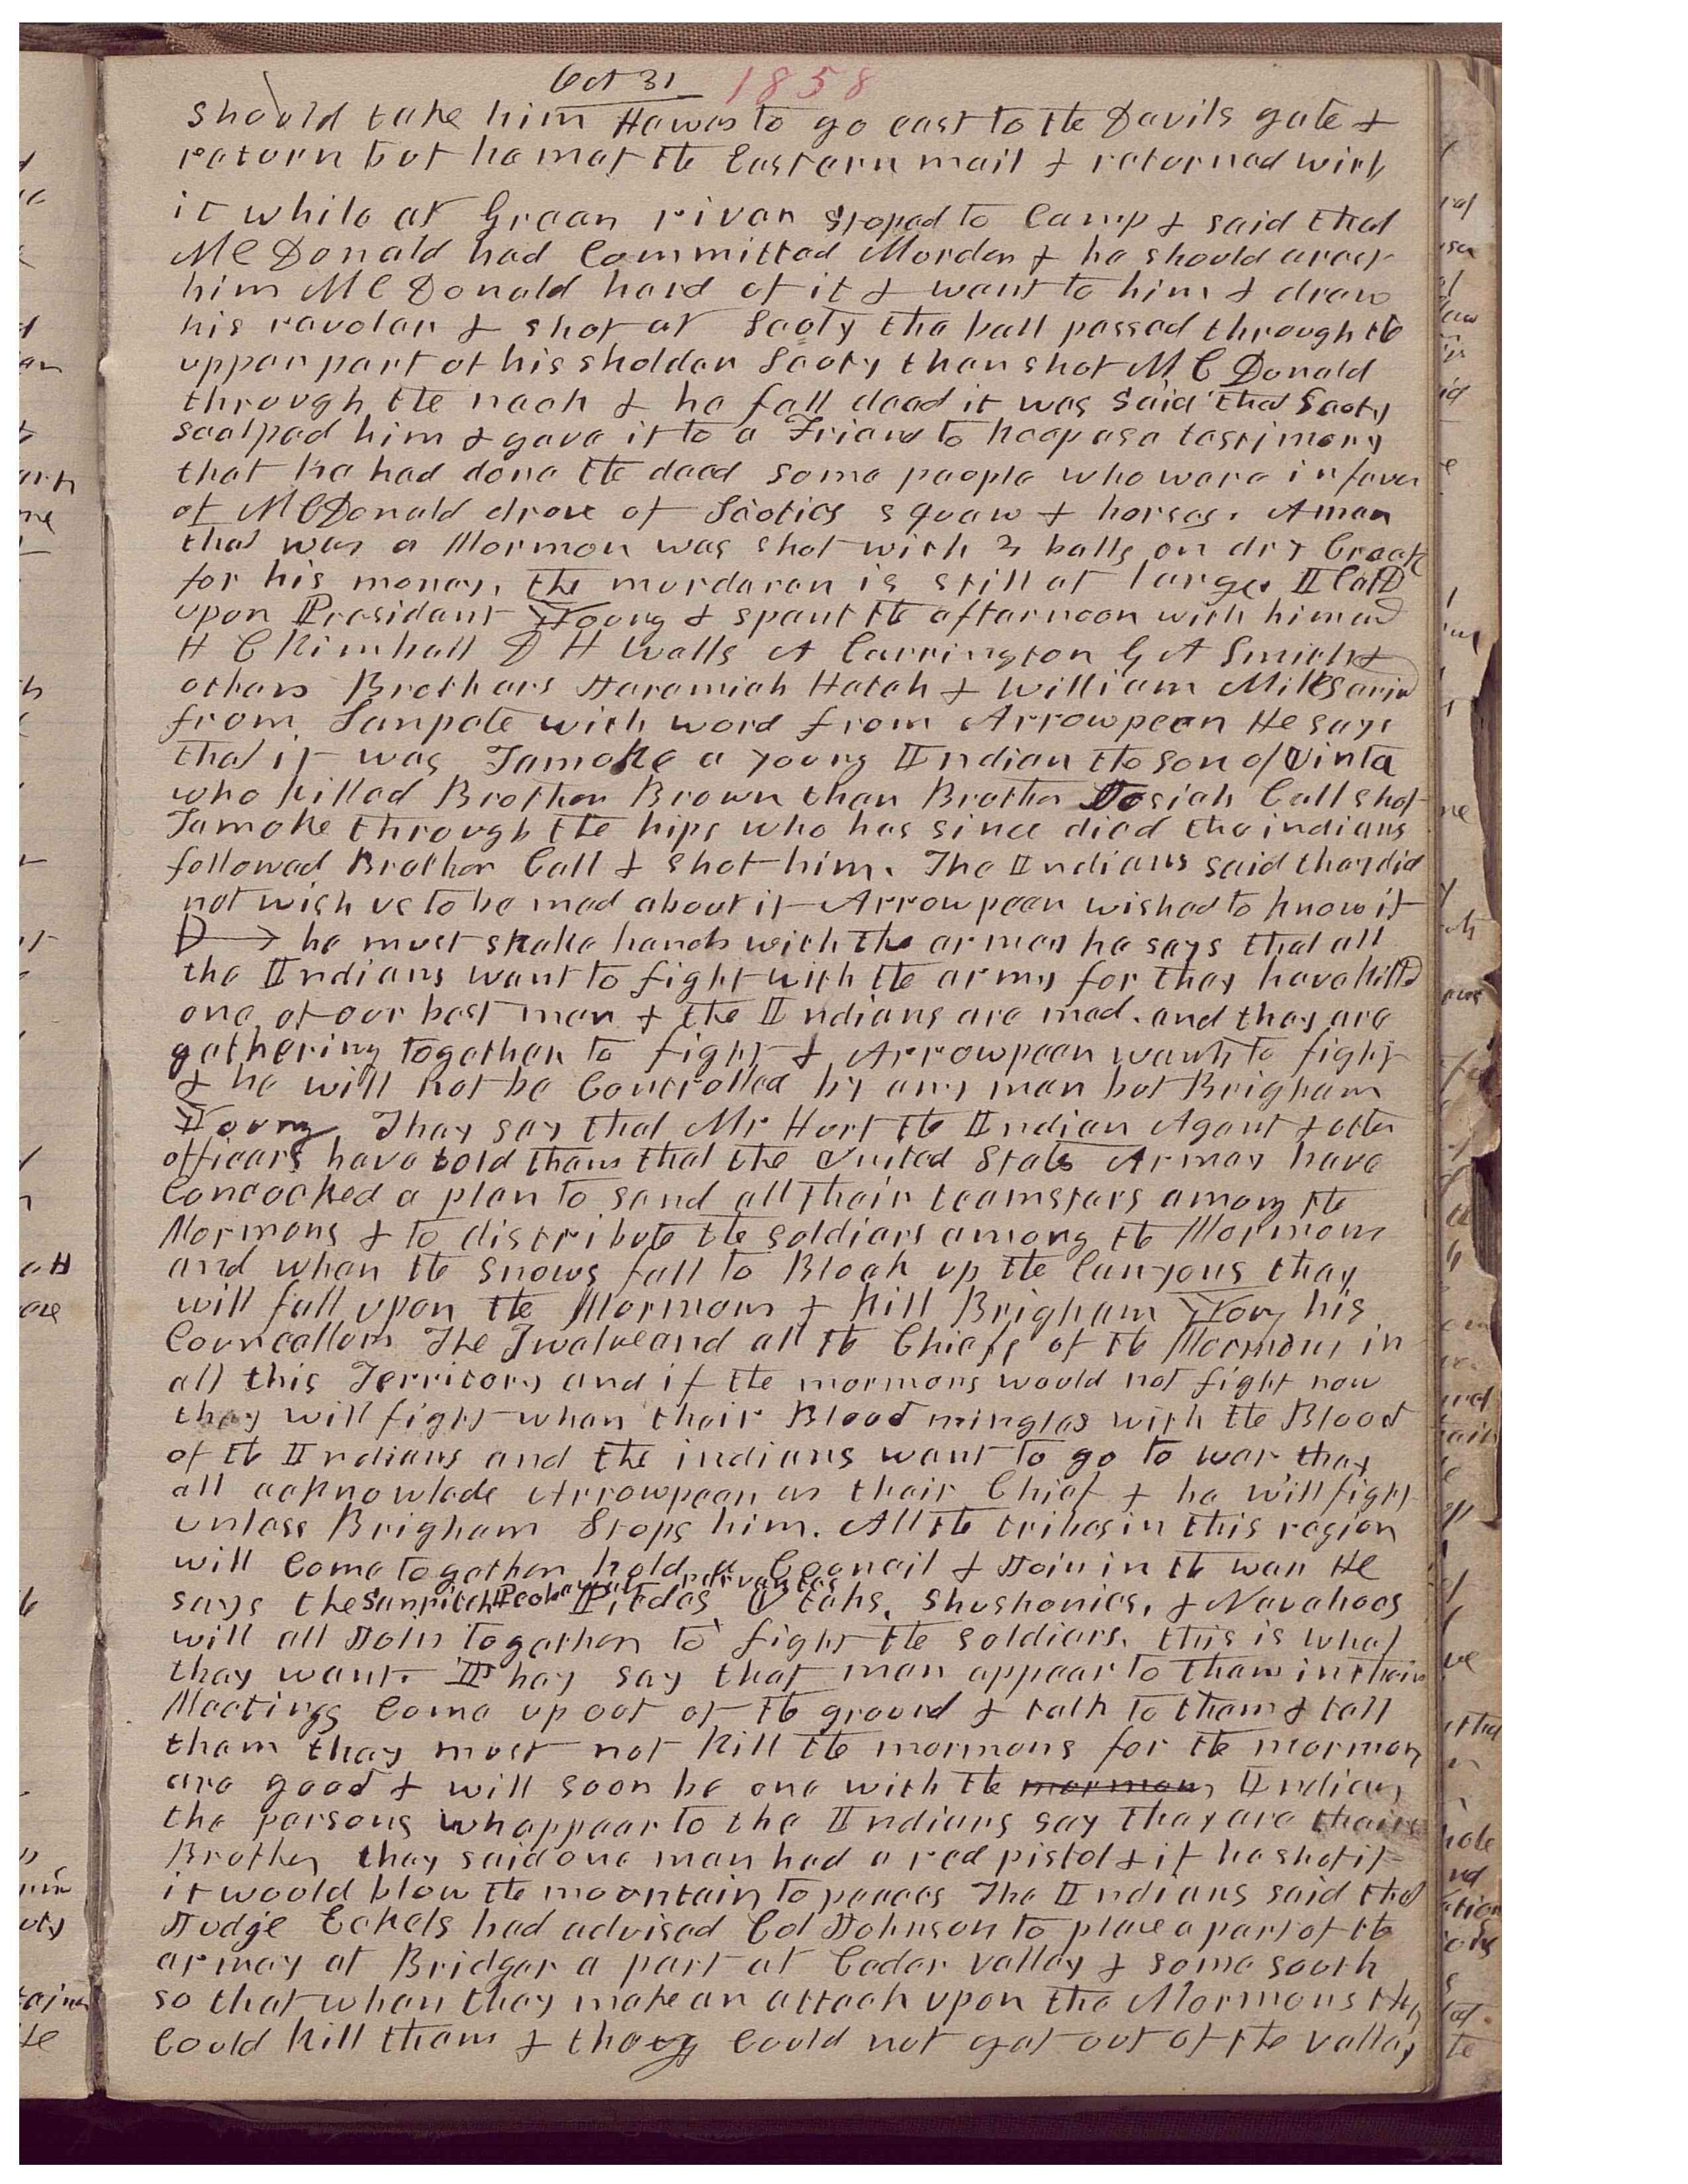 Oct 31 1858
should take him He was to go east to the Devils gate &
return but he met the Eastern mail & returned with
it while at Green river stoped to Camp & said that
McDonald had Committed Murder & he should arest
him McDonald herd of it & went to him & drew
his revolver & shot at Sooty the ball passed through the
upper part of his sholder Sooty then shot McDonald
through the neck & he fell dead it was said that Sooty
scalped him & gave it to a Friend to keep as a testimony
that he had done the deed some people who were in favor
of McDonald drove of Sooties squaw & horses. A man
that was a Mormon was shot with 3 balls on dry Creek
for his money, the murderer is still at large. I Calld
upon President Young & spent the afternoon with him and
H C Kimball D H Wells A Carrington G A Smith &
others Brothers Jeremiah Hatch & William Mills arivd
from Sanpete with word from Arrowpeen He says
that it was Tamoke a young Indian the son of Uinta
who killed Brother Brown then Brother Josiah Call shot
Tamoke through the hips who has since died the indians
followed Brother Call & shot him. The Indians said they did
not wish us to be mad about it Arrowpeen wished to know if
he must shake hands with the armey he says that all
the Indians want to fight with the army for they have killd
one of our best men & the Indians are mad. and they are
gathering together to fight & Arrowpeen wants to fight
& he will not be Controlled by any man but Brigham
Young They say that Mr Hurt the Indian Agent & other
officers have told them that the United States Armey have
Concocked a plan to send all their teamsters among the
Mormons & to distribute the soldiers among the Mormons
and when the snows fall to Block up the Canyons they
will fall upon the Mormons & kill Brigham Young his
Councellors The Twelve and all the Chiefs of the Mormons in
all this Territory and if the mormons would not fight now
they will fight when their Blood mingles with the Blood
of the Indians and the indians want to go to war they
all acknowlede Arrowpeen as their Chief & he will fight
unless Brigham Stops him. All the tribes in this region
will Come together hold a Council & Join in the war He
says the Sanpitch Pidedes Utahs, Shoshonies, & Navahoes
will all Join together to fight the soldiers. this is what
they want. They say that men appear to them in their
Meetings Come up out of the ground & talk to them & tell
them they must not kill the mormons for the mormons
are good & will soon be one with the mormons Indians
the persons who appear to the Indians say they are their
Brother they said one man had a red pistol & if he shot it
it would blow the mountain to peaces The Indians said that
Judge Eckels had advised Col Johnson to place a part of the
armey at Bridger a part at Cedar valley & some south
so that when they make an attack upon the Mormons they
Could kill them & they Could not get out of the valley